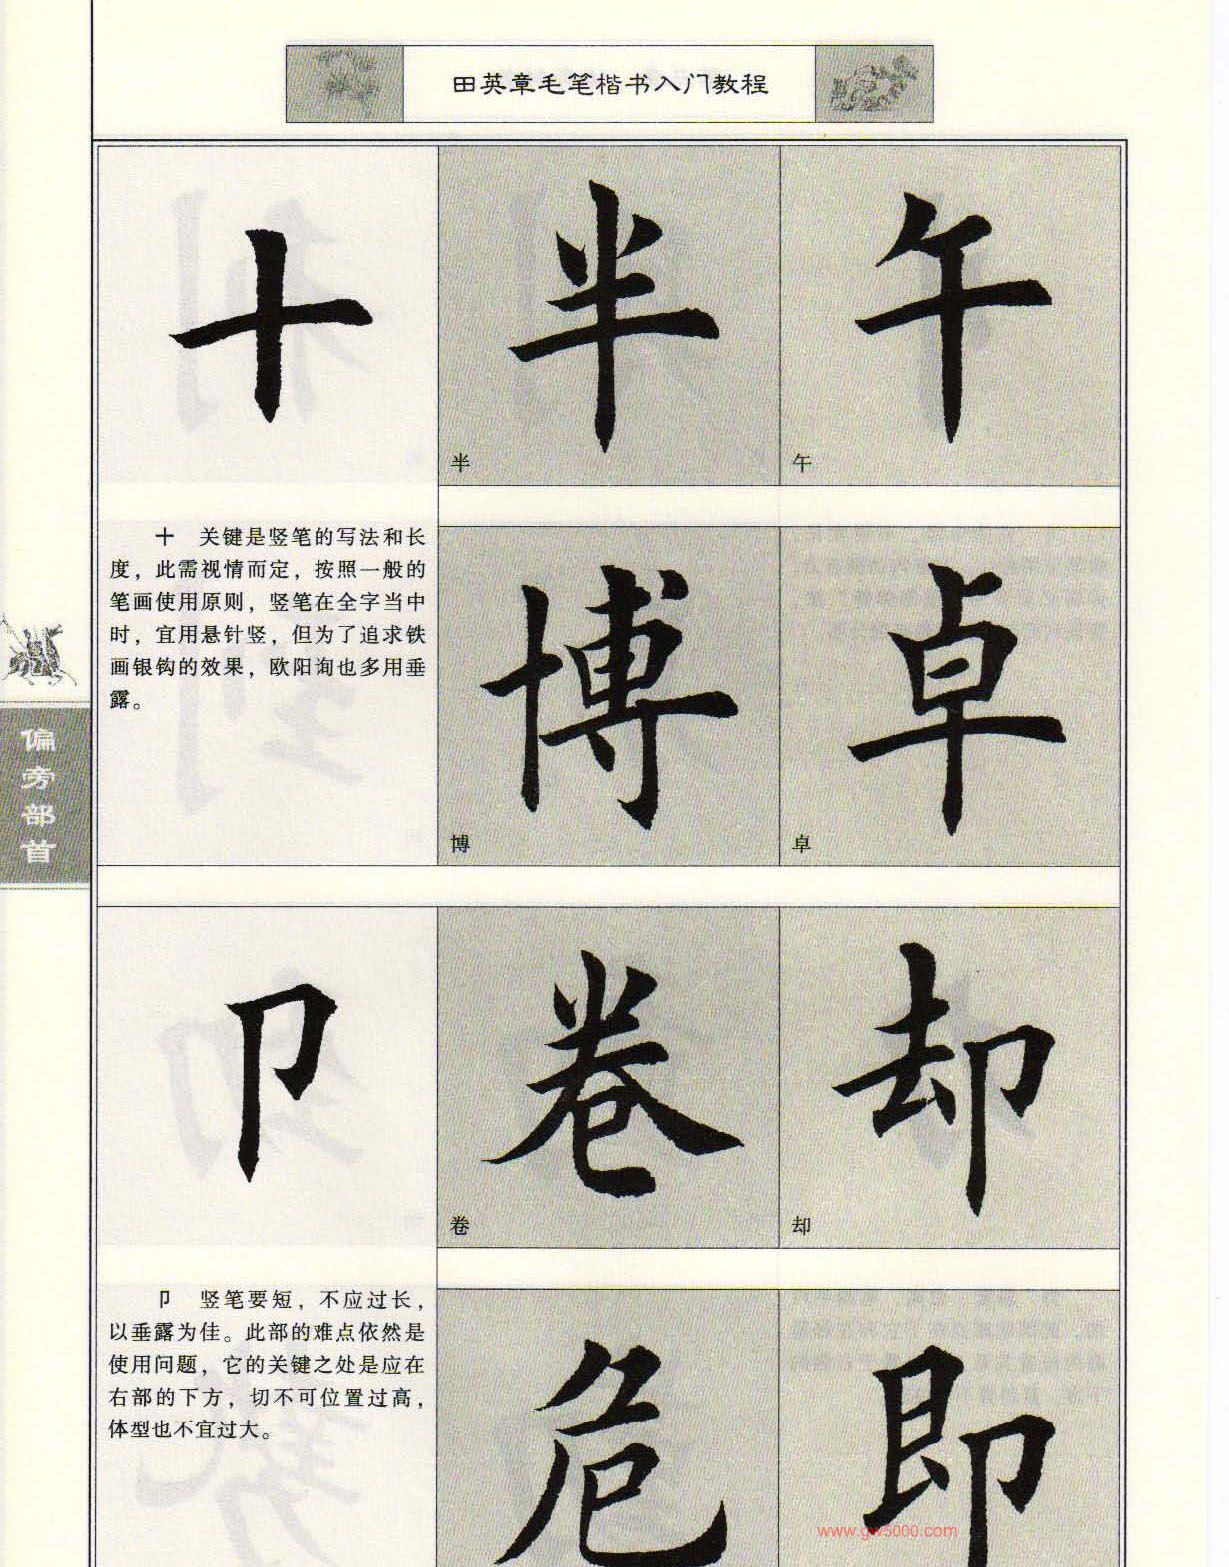 田英章毛笔楷书入门教程
十
半
午
半
午
十 关键是竖笔的写法和长
度，此需视情而定，按照一般的
笔画使用原则，竖笔在全字当中
时，宜用悬针竖，但为了追求铁
画银钩的效果，欧阳询也多用垂
露。
博
卓
博
卓
偏旁部首
卩
卷
却
卷
却
卩 竖笔要短，不应过长，
以垂露为佳。此部的难点依然是
使用问题，它的关键之处是应在
右部的下方，切不可位置过高，
体型也不宜过大。
危
即
www.gw5000.com